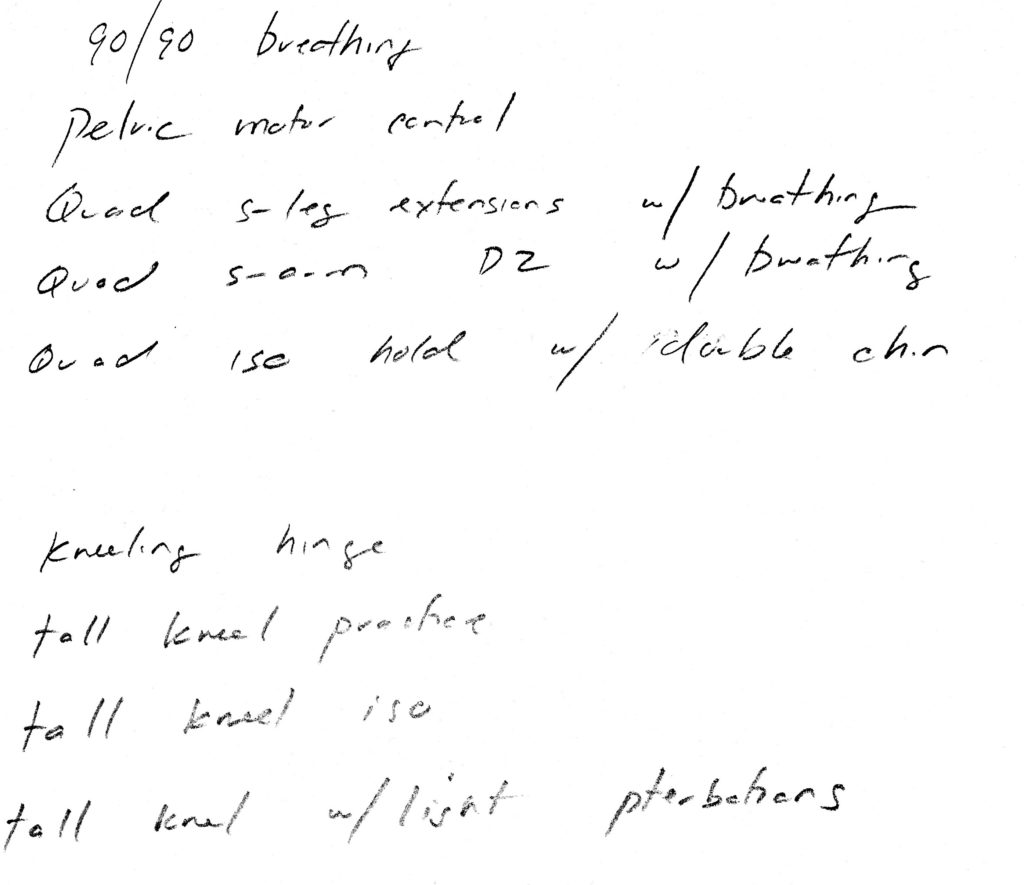 90/90 breathing
Pelvic motor control
Quad s-leg extensions w/ breathing
Quad s-arm D2 w/ breathing
Quad iso hold w/ double chin
kneeling hinge
tall kneel practice
tall kneel iso
tall knel w/ light pterbations